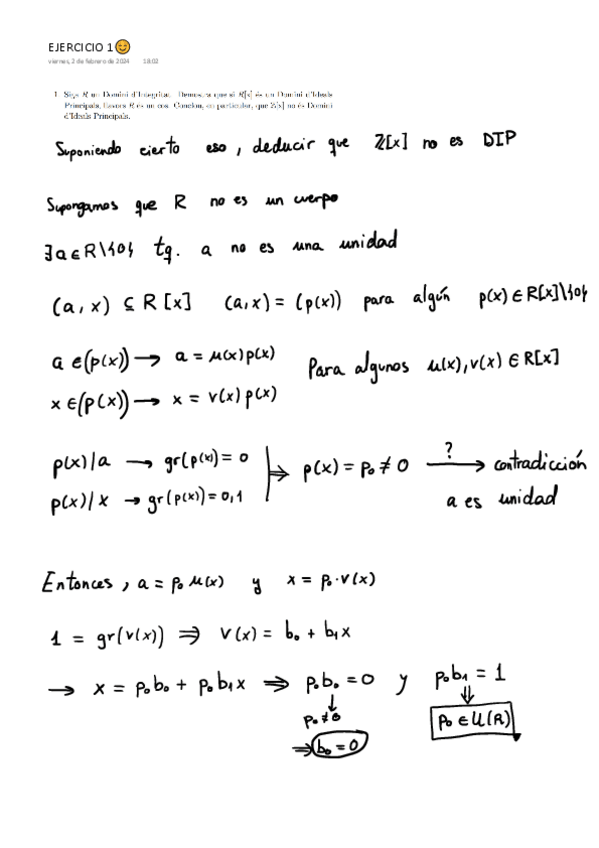 EJERCICIO 1😊
viernes, 2 de febrero de 2024 18:02
1. Sigui R un Domini d'Integritat. Demostra que si R[x] és un Domini d'Ideals
Principals, llavors R és un cos. Conclou, en particular, que Z[x] no és Domini
d'Ideals Principals.
Suponiendo cierto eso, deducir que Z[x] no es DIP
Supongamos que R no es un cuerpo
∃a∈R\{0} tq. a no es una unidad
(a, x) ⊆ R[x] (a,x) = (p(x)) para algún p(x)∈R[x]\{0}
a ∈(p(x)) → a = μ(x)p(x)
x ∈(p(x)) → x = v(x)p(x)
Para algunos μ(x), v(x) ∈ R[x]
p(x)/a → gr(p(x)) = 0
p(x)/x → gr(p(x)) = 0,1
⇒ p(x) = p₀ ≠ 0 →? contradicción
a es unidad
Entonces, a = p₀ μ(x) y x = p₀·v(x)
1 = gr(v(x)) ⇒ v(x) = b₀ + b₁x
→ x = p₀b₀ + p₀b₁x ⇒ p₀b₀ = 0 y p₀b₁ = 1
↓ ⇓
p₀ ≠ 0 p₀ ∈ U(R)
⇒ b₀ = 0